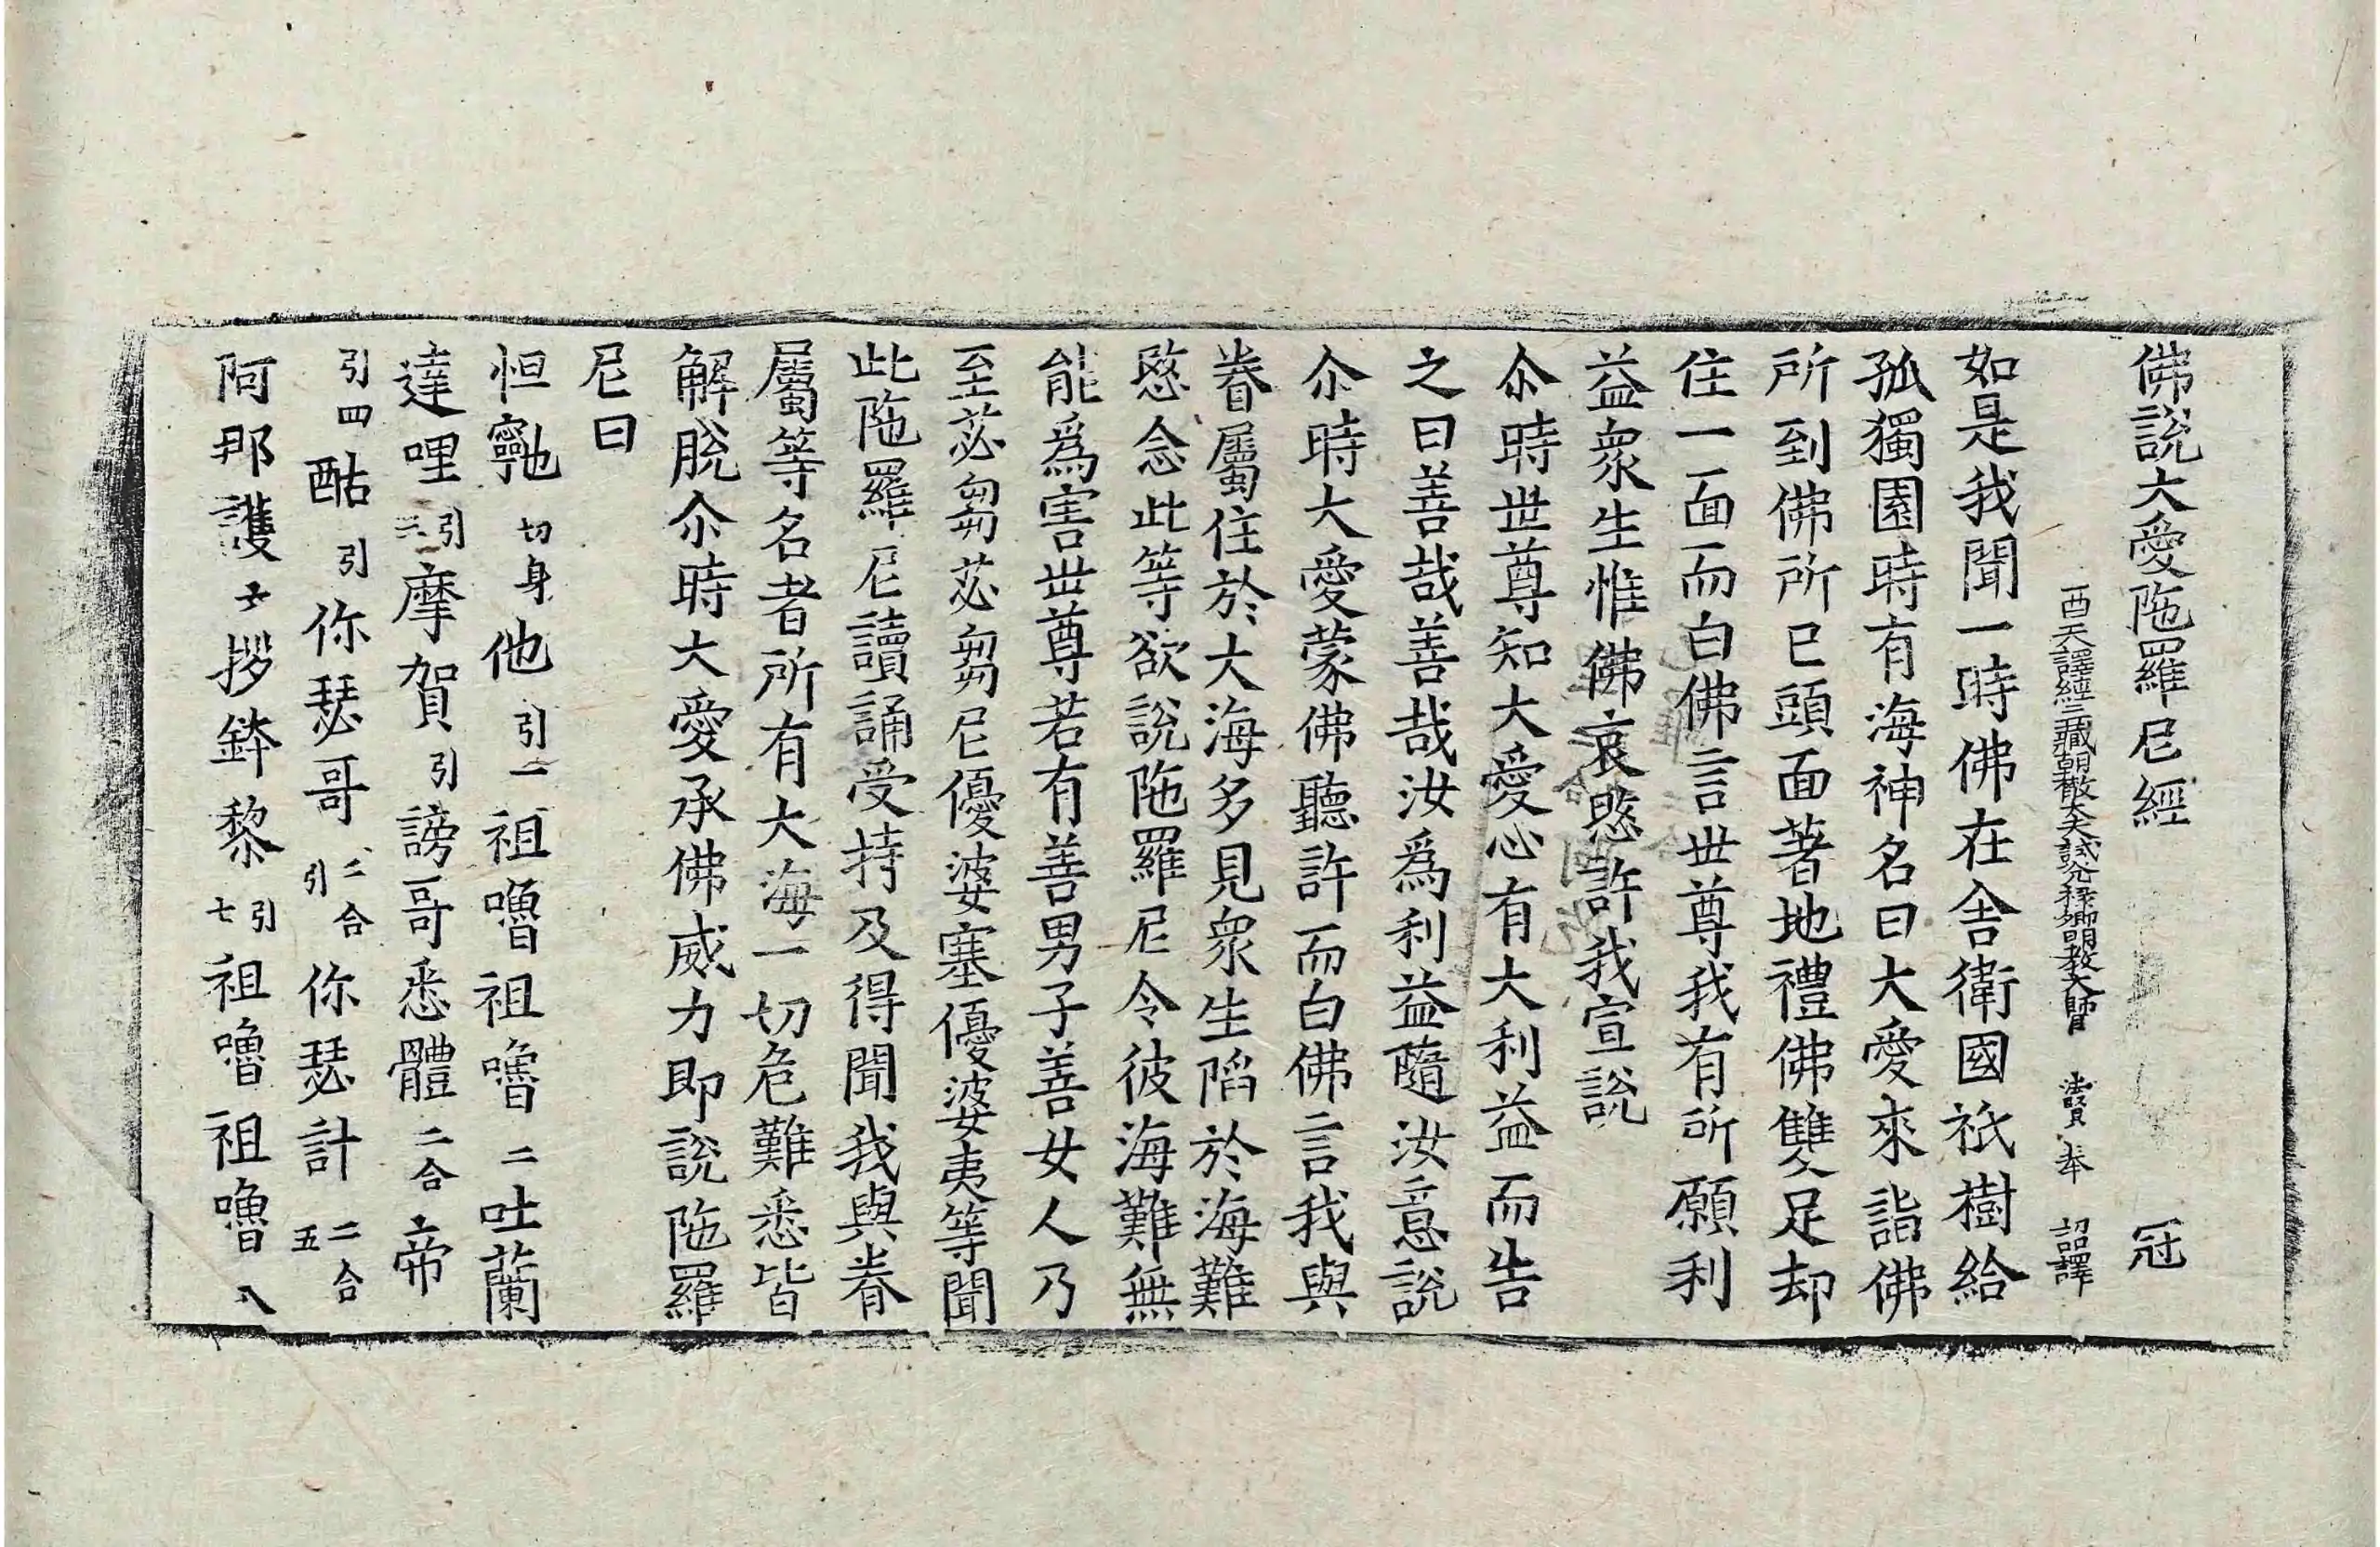 佛說大愛陁羅尼經 冠
西天譯經三藏朝散大夫試光祿卿明教大師臣 法賢 奉 詔譯
如是我聞一時佛在舍衛國祇樹給
孤獨園時有海神名曰大愛來詣佛
所到佛所已頭面著地禮佛雙足却
住一面而白佛言世尊我有所願利
益衆生惟佛哀愍許我宣說
尒時世尊知大愛心有大利益而告
之曰善哉善哉汝爲利益隨汝意說
尒時大愛蒙佛聽許而白佛言我與
眷屬住於大海多見衆生陷於海難
愍念此等欲說陁羅尼令彼海難無
能爲害世尊若有善男子善女人乃
至苾芻苾芻尼優婆塞優婆夷等聞
此陁羅尼讀誦受持及得聞我與眷
屬等名者所有大海一切危難悉皆
解脫尒時大愛承佛威力即說陁羅
尼曰
怛寧也切身他引一祖嚕祖嚕二吐蘭
達哩引三摩賀引謗哥悉體二合帝
引四酤引你瑟哥二合引你瑟計二合五
阿那護六拶鉢黎引七祖嚕祖嚕八